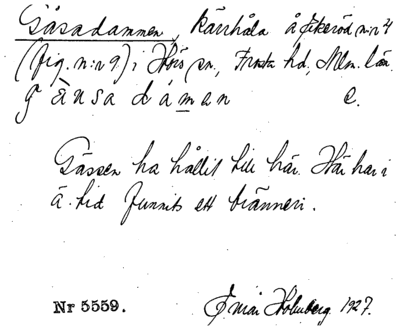 Gåsadammen, kärrhåla å Fikeröd n:r 4
(fig. n:r 9) i Hörs sn, Frosta hd, Mlm. län.
gåsadáman e.
Gässen ha hållit till här. Här har i
ä. tid funnits ett bränneri.
Nr 5559. Einar Holmberg 1927.